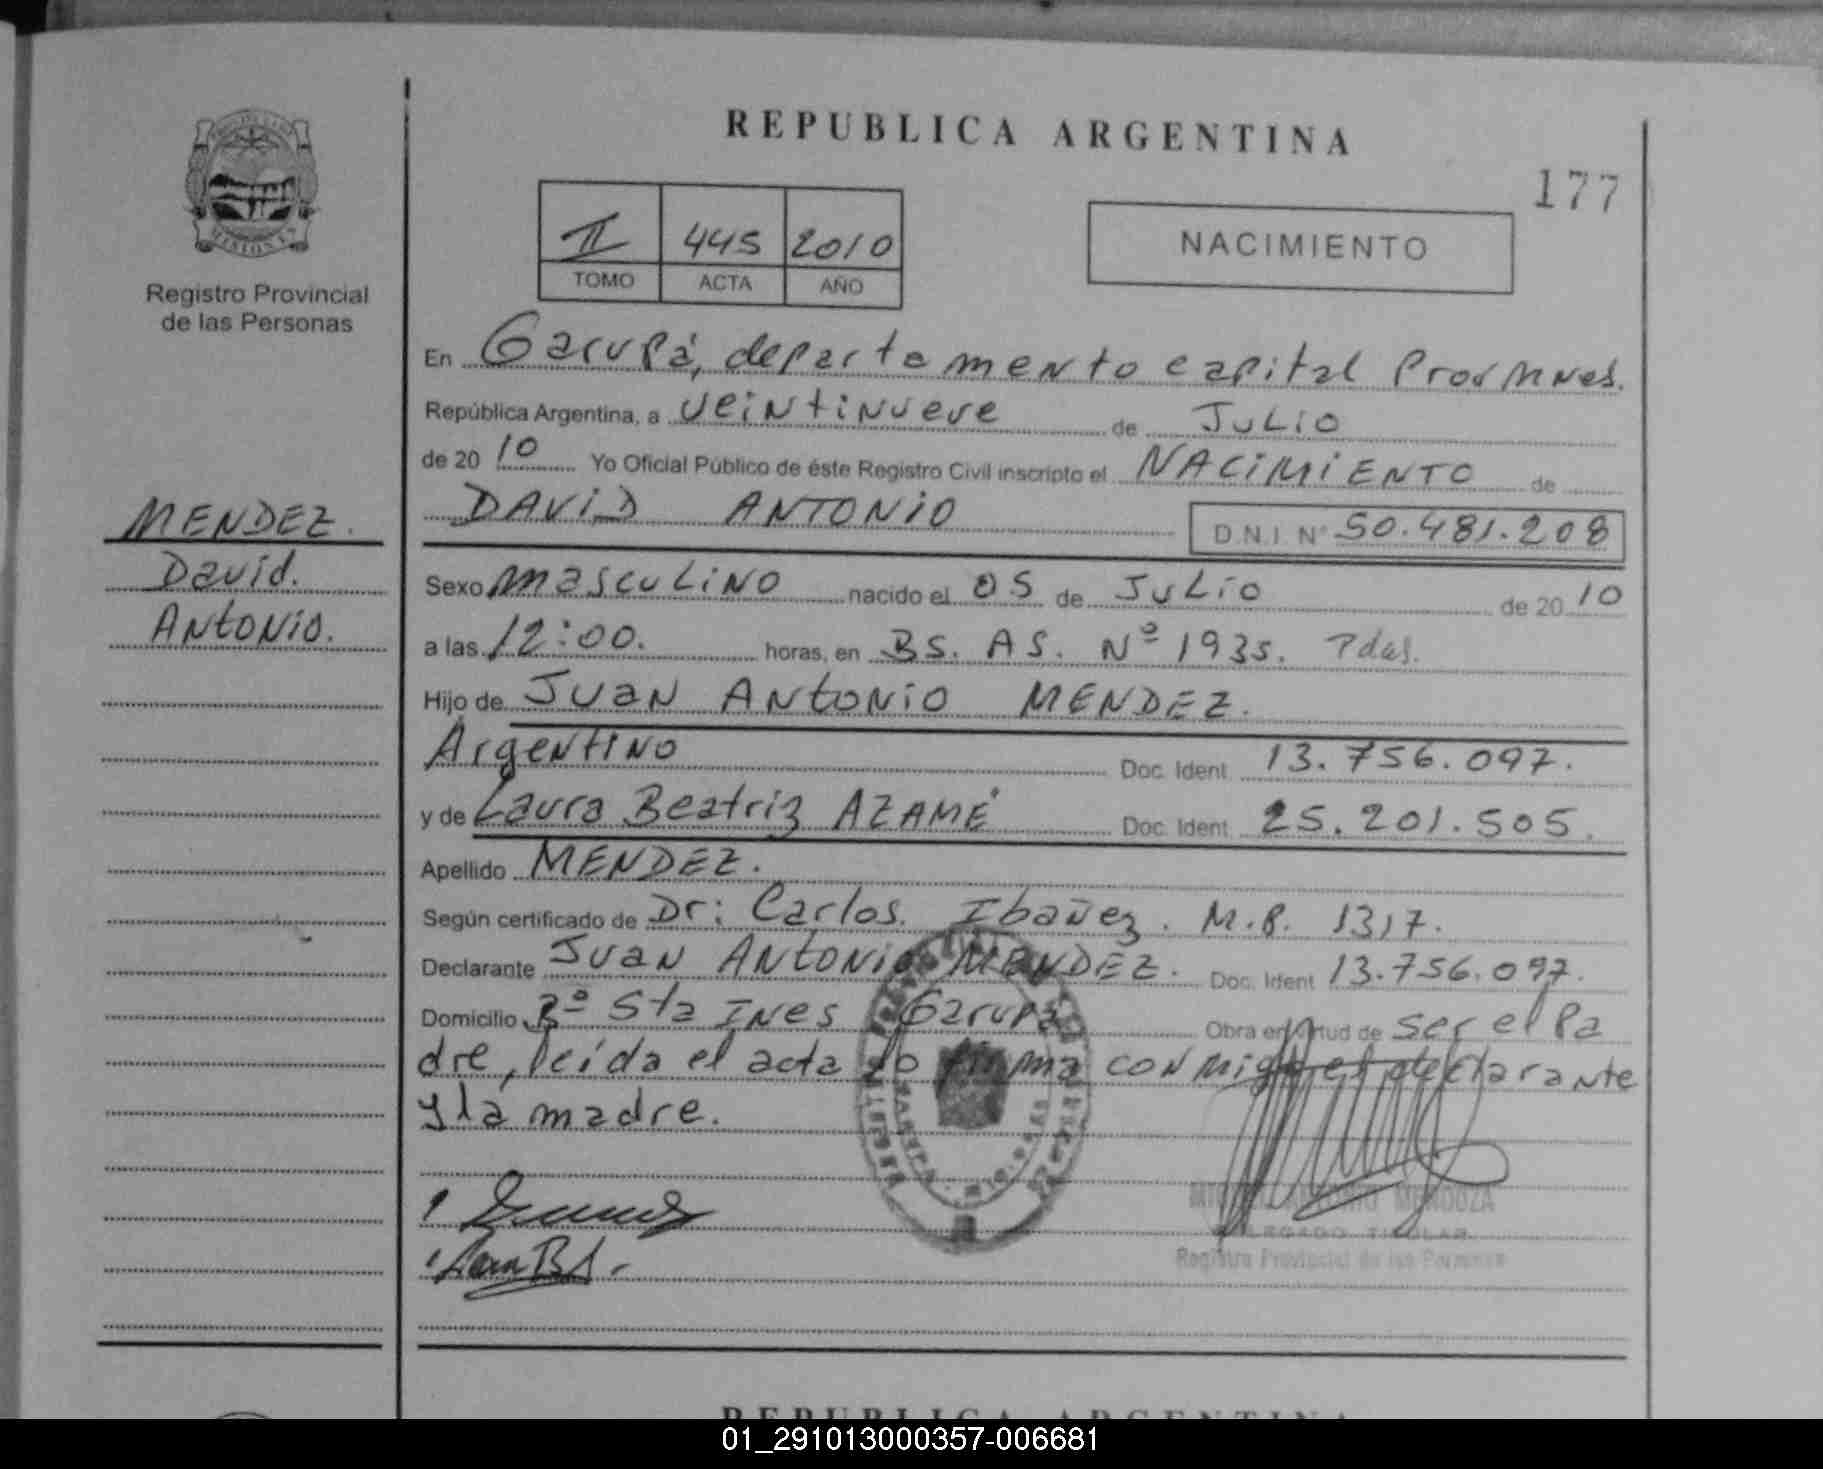 REPUBLICA ARGENTINA
177
II 445 2010
TOMO ACTA AÑO
NACIMIENTO
Registro Provincial
de las Personas
MENDEZ.
David.
Antonio.
En Garupá, departamento capital Prov Mnes.
República Argentina, a veintinueve de Julio
de 20 10 Yo Oficial Público de éste Registro Civil inscripto el NACIMIENTO de
DAVID ANTONIO D.N.I. Nº 50.481.208
Sexo masculino nacido el 05 de Julio de 20 10
a las 12:00. horas, en BS. AS. Nº 1935. Pdas.
Hijo de Juan Antonio MENDEZ.
Argentino Doc. Ident 13.756.097.
y de Laura Beatriz AZAMÉ Doc. Ident 25.201.505.
Apellido MENDEZ.
Según certificado de Dr: Carlos Ibañez. M.P. 1317.
Declarante Juan Antonio MENDEZ. Doc. Ident 13.756.097.
Domicilio Bº Sta Ines Garupá Obra en virtud de ser el Pa
dre, leída el acta lo firma conmigo el declarante
y la madre.
MIGUEL ANTONIO MENDOZA
DELEGADO TITULAR
Registro Provincial de las Personas
REPUBLICA ARGENTINA
01_291013000357-006681